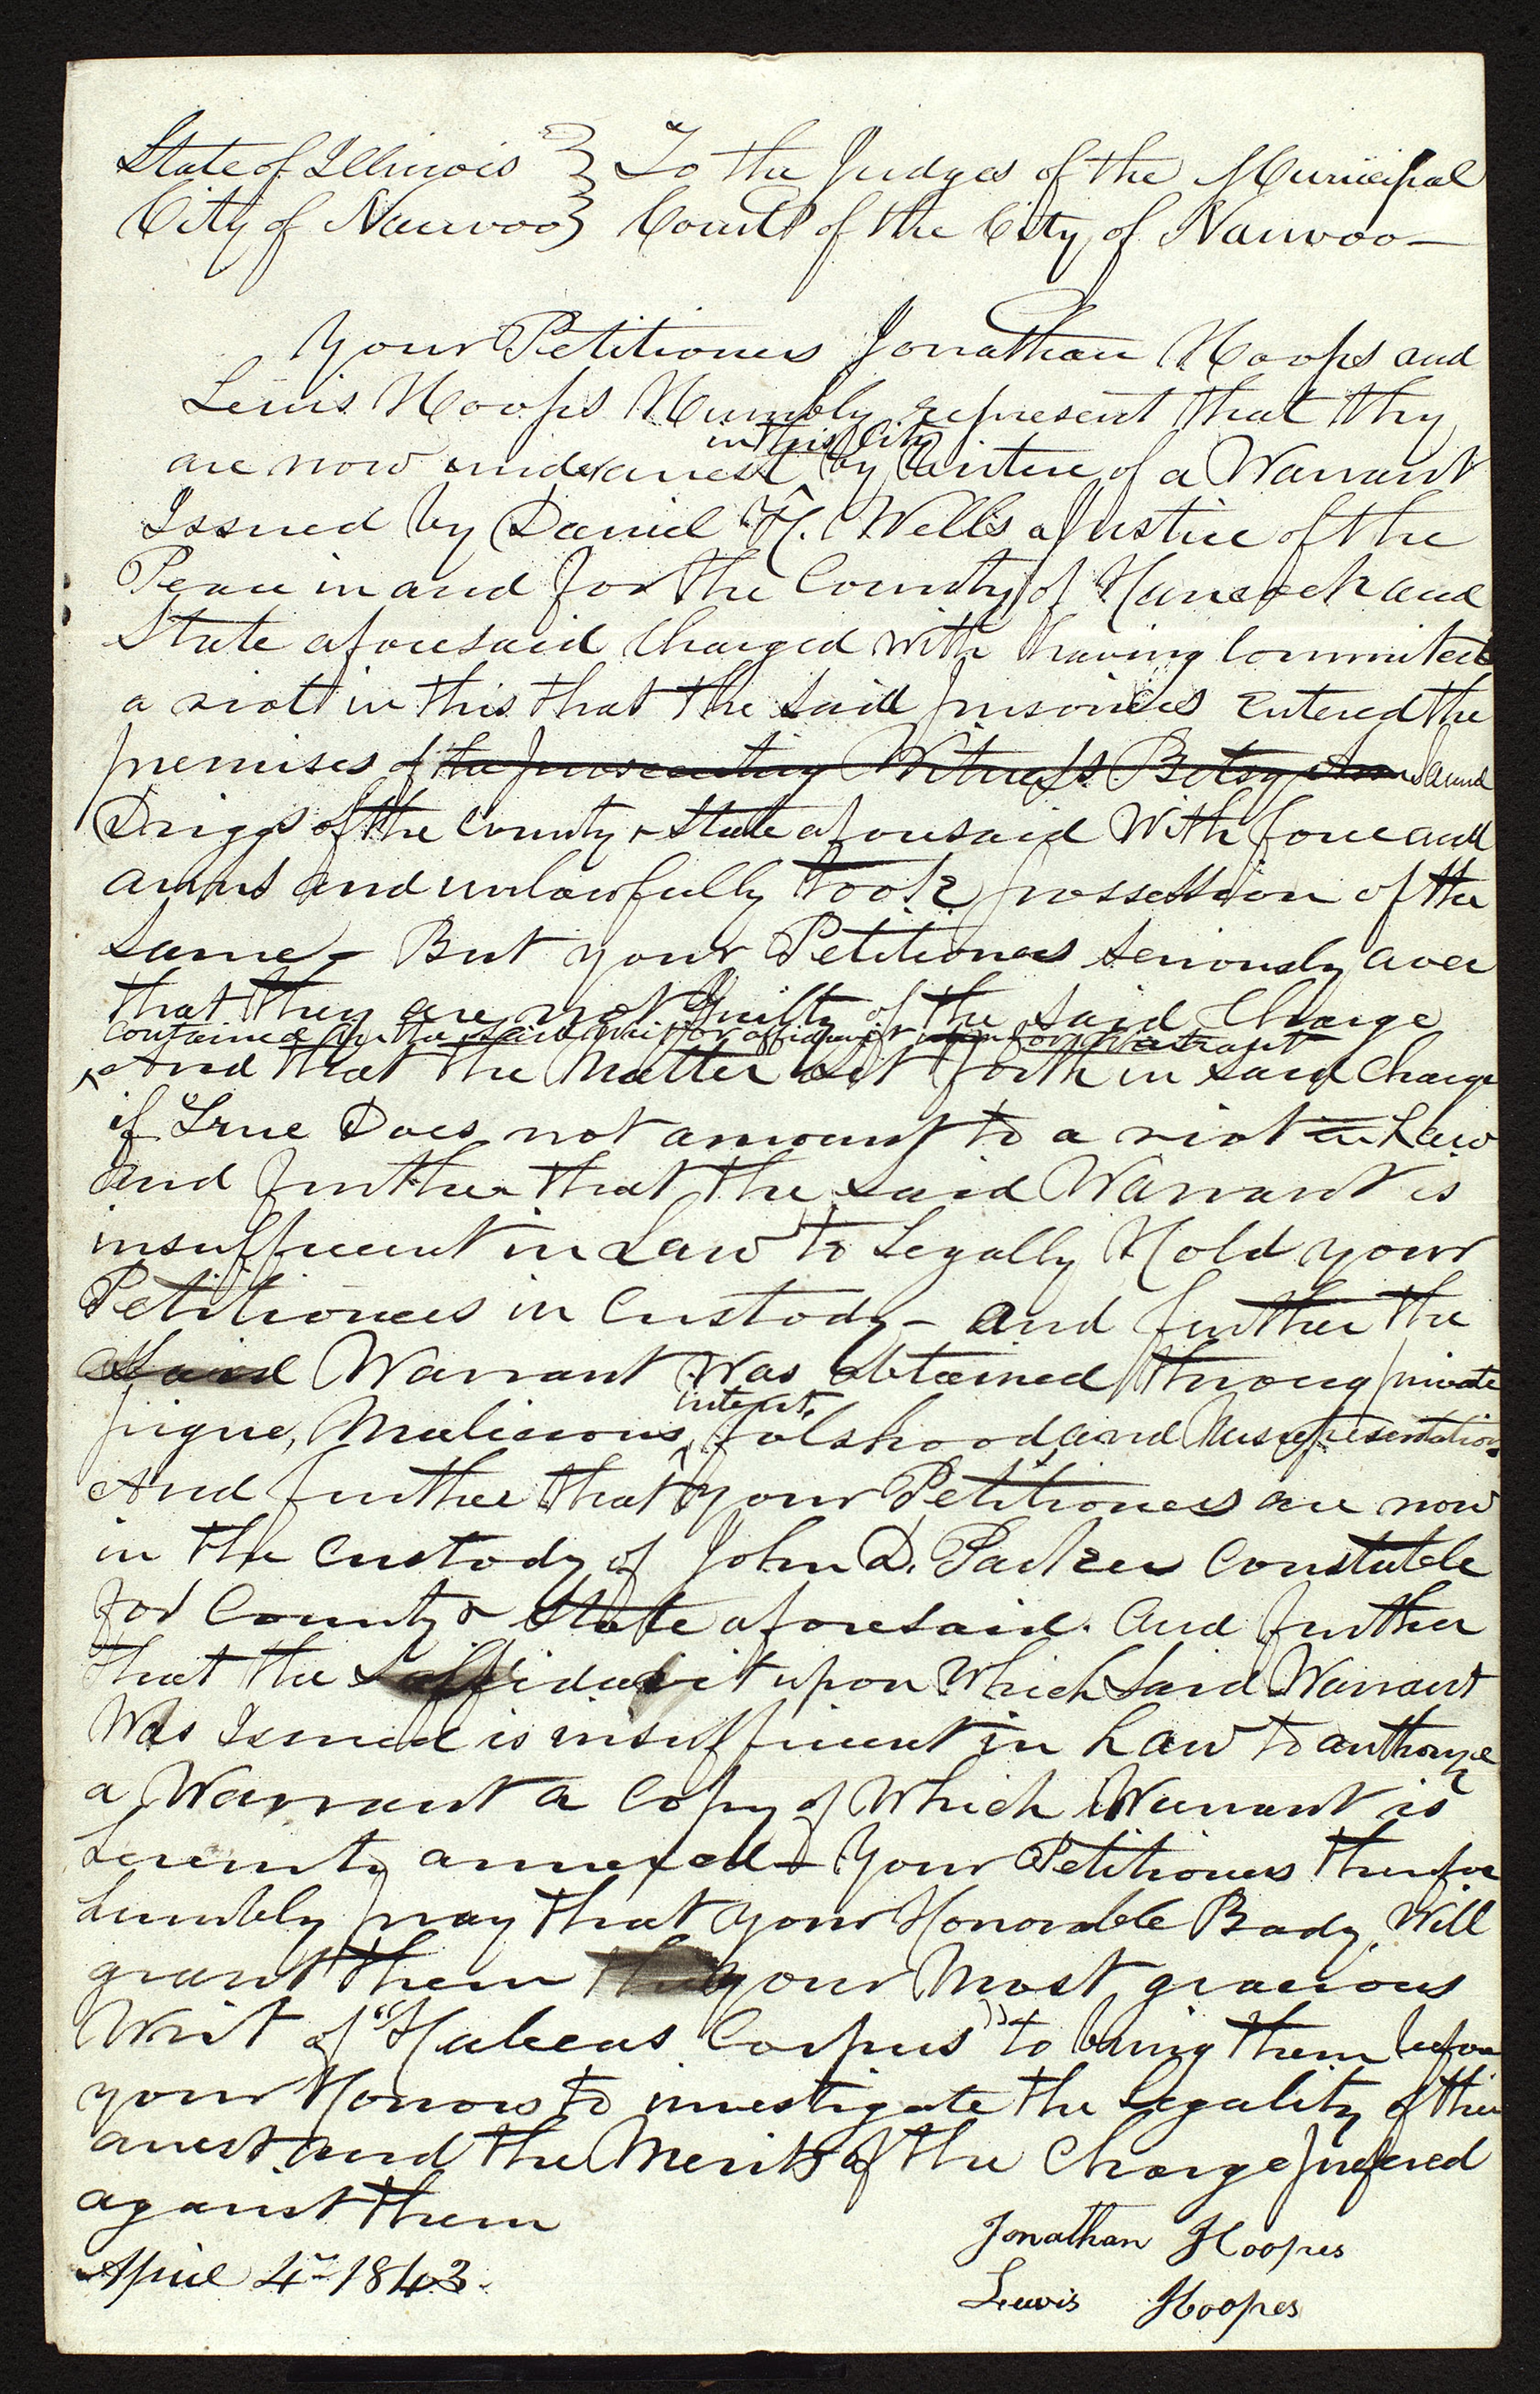 State of Illinois } To the Judges of the Municipal
City of Nauvoo } Court of the City of Nauvoo—
Your Petitioners Jonathan Hoops and
Lewis Hoops Humbly represent that thy
in this City
are now under arrest by virtue of a Warrant
Issued by Daniel H. Wells a Justice of the
Peace in and for the County of Hancock and
State aforesaid Charged with having Commited
a riott in this that the said prisoners entered the
premises of the prosecuting Witness Betsy
Driggs of the County & State aforesaid With force and
arms and unlawfully took possession of the
same— But your Petitioners seriously aver
that they are not Guilty of the said Charge
contained in the said writ or affidavit for Warrant
And that the Matter Set forth in said Charge
if True Does not amount to a riot in Law
and further that the said Warrant is
insufficient in Law to Legally Hold your
Petitioners in Custody— and further the
said Warrant Was obtained throug private
intent,
pique, Malicious, falshood and Misrepresentation.
And further that your Petitioners are now
in the Custody of John D. Parker Constable
for County & State aforesaid. and further
that the affidavit upon Which said Warrant
Was Issued is insufficient in Law to authorize
a Warrant a Copy of Which Warrant is
hereunto annexed— Your Petitioners therefor
humbly pray that your Honorable Body Will
grant them your Most gracious
Writ of "Habeas Corpus" to bring them before
your Honors to investigate the Legality of their
arrest and the Merits of the Charge prefered
against them
April 4th 1843.
Jonathan Hoopes
Lewis Hoopes